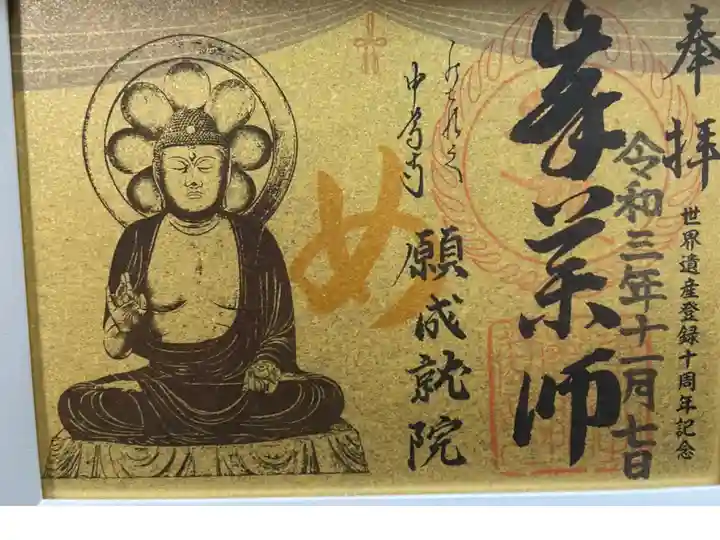 奉拝
世界遺産登録十周年記念
令和三年十一月七日
峯薬師
中尊寺
願成就院
妙